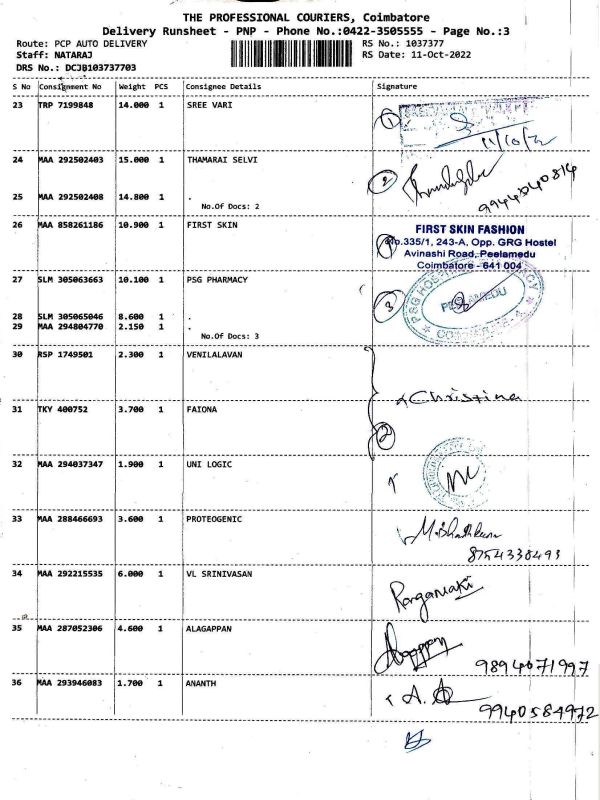 THE PROFESSIONAL COURIERS, Coimbatore
Delivery Runsheet - PNP - Phone No.:0422-3505555 - Page No.:3
Route: PCP AUTO DELIVERY RS No.: 1037377
Staff: NATARAJ RS Date: 11-Oct-2022
DRS No.: DCJB103737703
S No Consignment No Weight PCS Consignee Details Signature
23 TRP 7199848 14.000 1 SREE VARI 1
11/10/22
24 MAA 292502403 15.000 1 THAMARAI SELVI 2
9944040814
25 MAA 292502408 14.800 1 .
No.Of Docs: 2
26 MAA 858261186 10.900 1 FIRST SKIN 1
FIRST SKIN FASHION
No.335/1, 243-A, Opp. GRG Hostel
Avinashi Road, Peelamedu
Coimbatore - 641 004
27 SLM 305063663 10.100 1 PSG PHARMACY 3
PSG HOSPITAL PHARMACY
PEELAMEDU
28 SLM 305065046 8.600 1 .
29 MAA 294804770 2.150 1 .
No.Of Docs: 3
30 RSP 1749501 2.300 1 VENILALAVAN
Christina
31 TKY 400752 3.700 1 FAIONA
2
32 MAA 294037347 1.900 1 UNI LOGIC
33 MAA 288466693 3.600 1 PROTEOGENIC
8754330493
34 MAA 292215535 6.000 1 VL SRINIVASAN
35 MAA 287052306 4.600 1 ALAGAPPAN
Alagappan
9894071997
36 MAA 293946083 1.700 1 ANANTH
9940584972